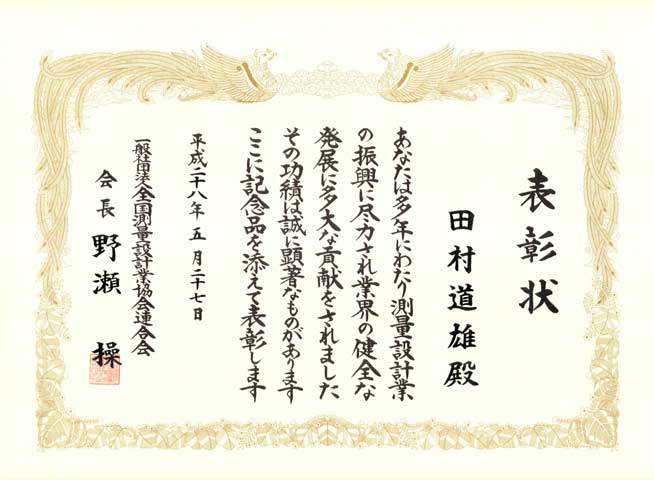 表彰状
田村道雄殿
あなたは多年にわたり測量設計業
の振興に尽力され業界の健全な
発展に多大な貢献をされました
その功績は誠に顕著なものがあります
ここに記念品を添えて表彰します
平成二十八年五月二十七日
一般社団法人全国測量設計業協会連合会
会長野瀬操